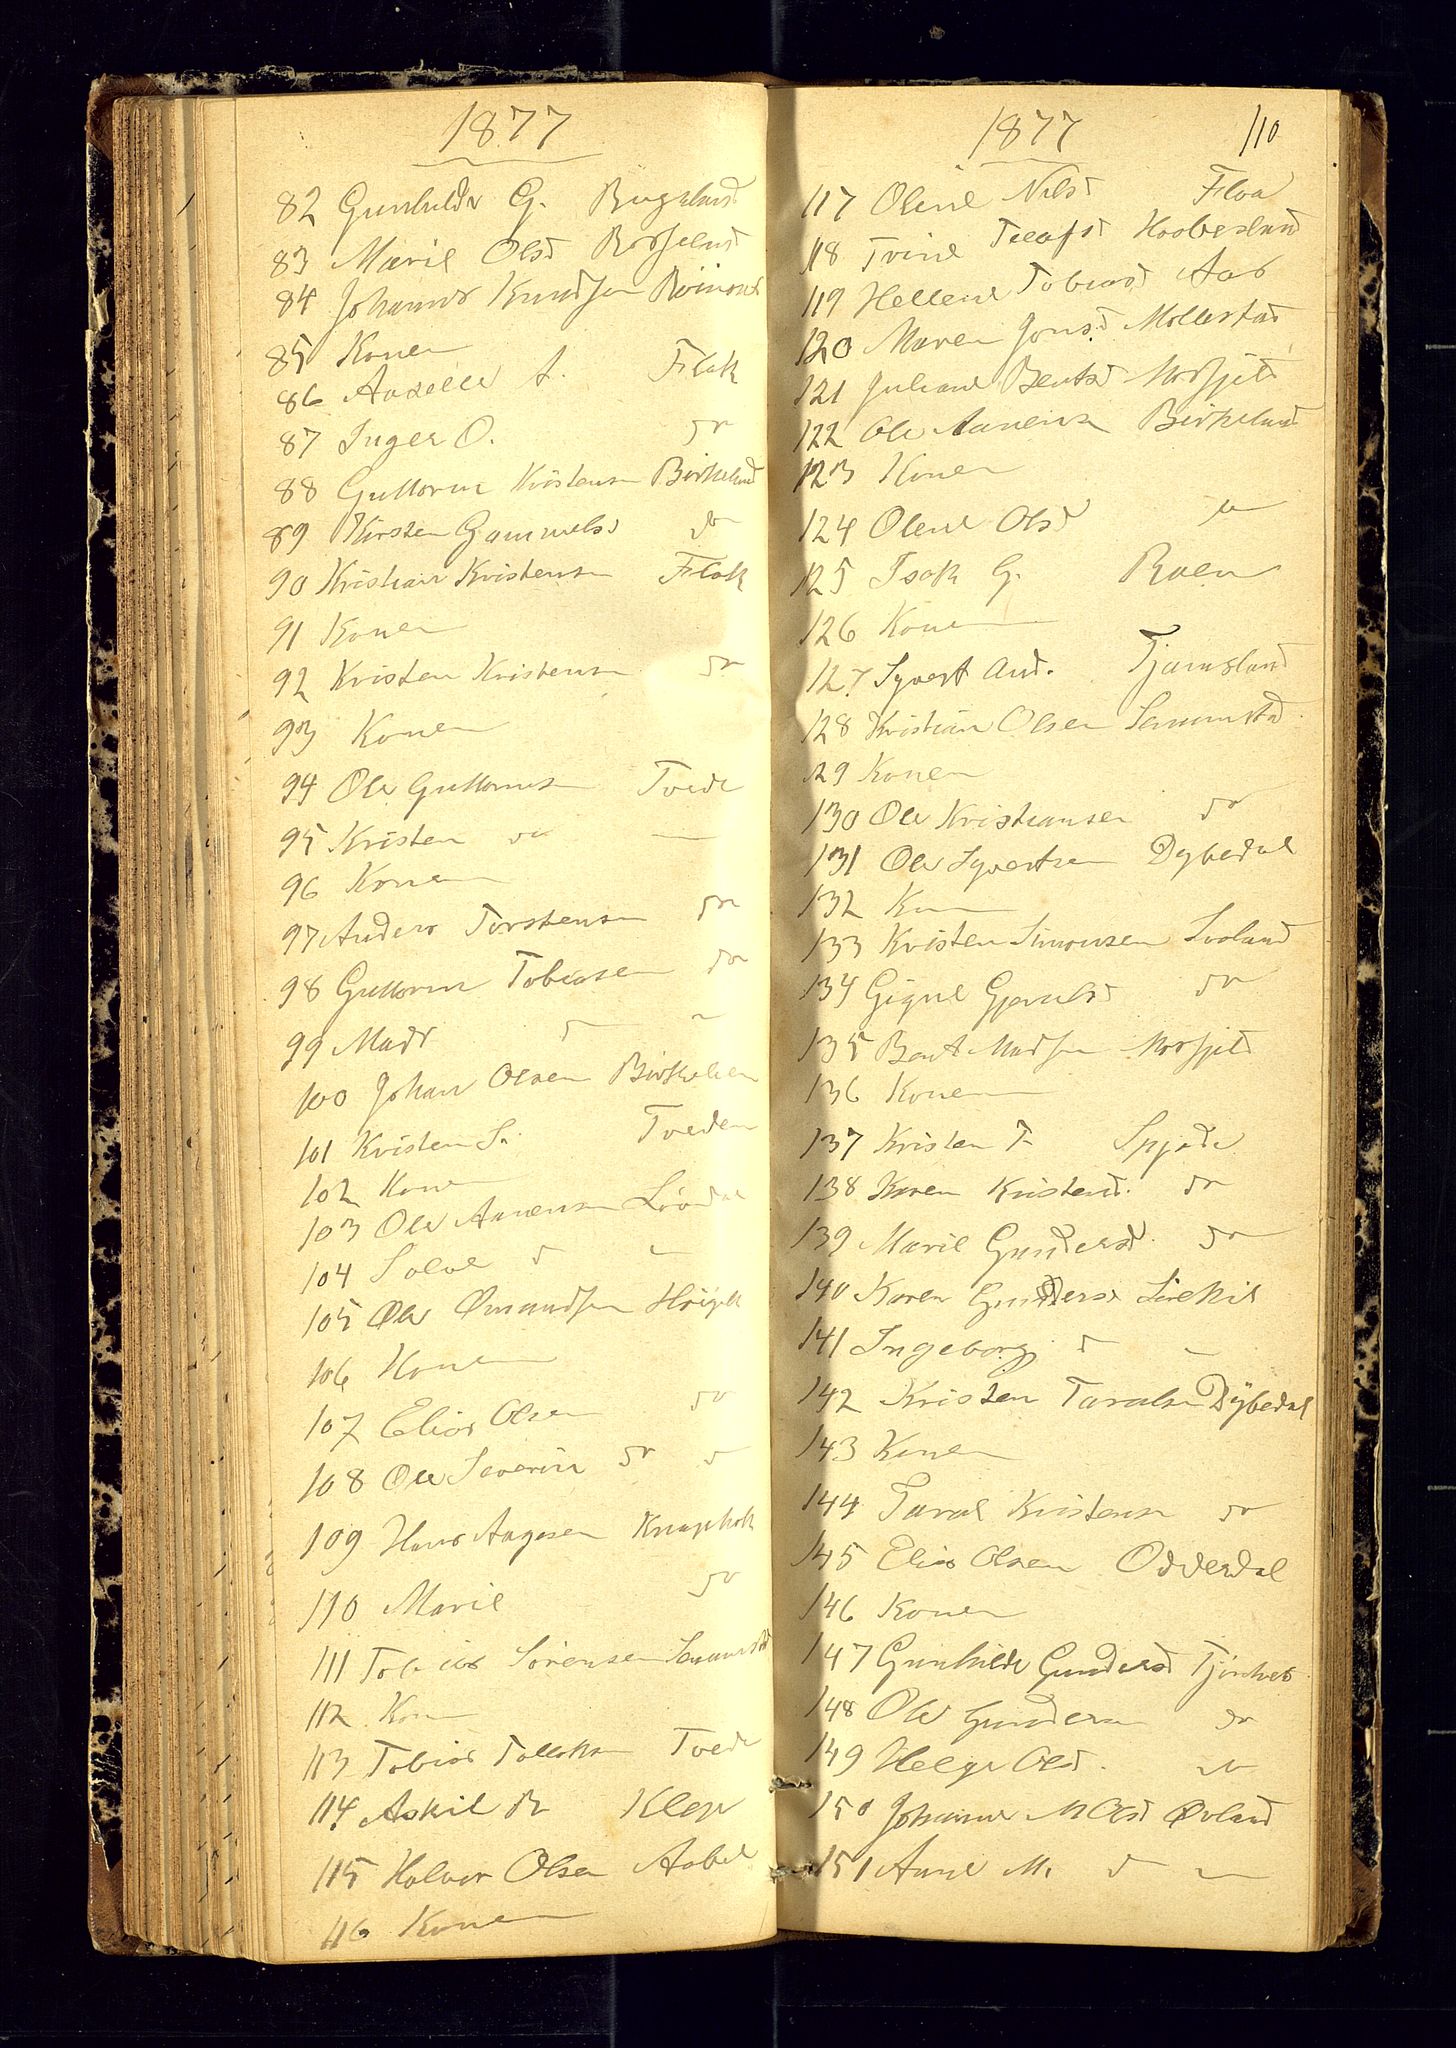 1877
82 Gunhilde G. Birgeland
83 Marie Olsd
84 Johannes Knudsen
85 Konen
86 A. Flak
87 Inger O. do
88 Guttorm Kristensen Birkeland
89 Kirsten Gammelsd do
90 Kristian Kristensen Flak
91 Konen
92 Kristen Kristensen do
93 Konen
94 Ole Guttormsen Tvede
95 Kristen do —
96 Konen
97 Anders Torstensen do
98 Guttorm Tobiasen do
99 Mads do —
100 Johan Olsen Birkelien
101 Kristen S. Tveden
102 Konen
103 Ole Aanensen
104 Salve do —
105 Ole Omundsen
106 Konen
107 Elias Olsen do
108 Ole Severin do do
109 Hans Aagesen Knapholt
110 Marie do
111 Tobias Sørensen
112 Konen
113 Tobias Tellefsen Tvede
114 Askil do Klep
115 Halvor Olsen Aabel
116 Konen
1877 110
117 Oline Nilsd Floa
118 Trine Tellefsd
119 Hellene Tobiasd Aas
120 Maren Jonsd. Mollestad
121 Juliane Bentsd
122 Ole Aanensen Birkeland
123 Konen
124 Olene Olsd do
125 Isak G. Roen
126 Konen
127. Syvert And. Tjomsland
128 Kristian Olsen
129 Konen
130 Ole Kristiansen do
131 Ole Syvertsen Dybedal
132 Konen
133 Kristen Simonsen
134 do
135 Bent Madsen
136 Konen
137 Kristen T.
138 Karen Kristensd. do
139 Marie Gundersd. do
140 Karen Gundersd
141 Ingeborg do —
142 Kristen Taralsen Dybedal
143 Konen
144 Taral Kristensen do
145 Elias Olsen Odderdal
146 Konen
147 Gunhilde Gundersd
148 Ole Gundersen do
149 Helge Olsd. do
150 Johanne M Olsd Øvland
151 Anne M. do —